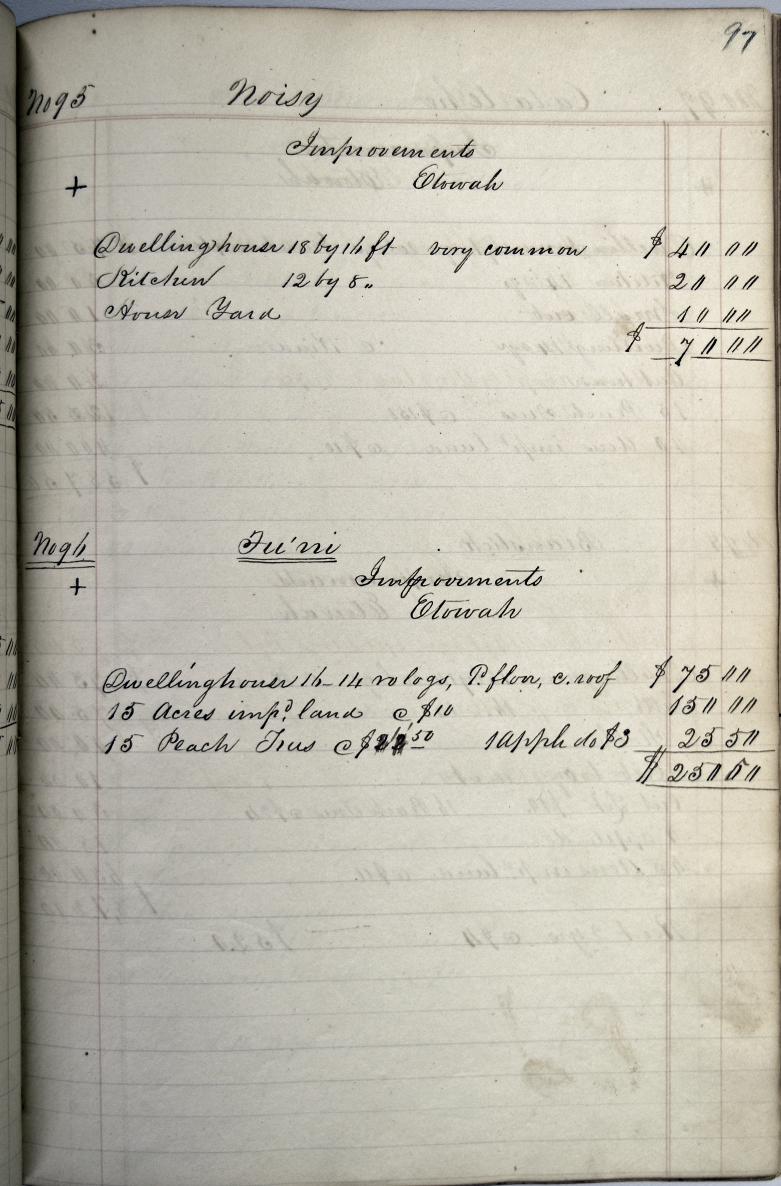 97
No 95 Noisy
Improvements
+ Etowah
Dwellinghouse 18 by 16 ft very common $ 40 00
Kitchen 12 by 8 „ 20 00
House Yard 10 00
$ 70 00
No 96
+ Improvements
Etowah
Dwellinghouse 16-14 ro logs, P. floor, c. roof $ 75 00
15 Acres impd. land @ $10 150 00
15 Peach Trees @ $ 50 1 apple do $3 25 50
$ 250 50